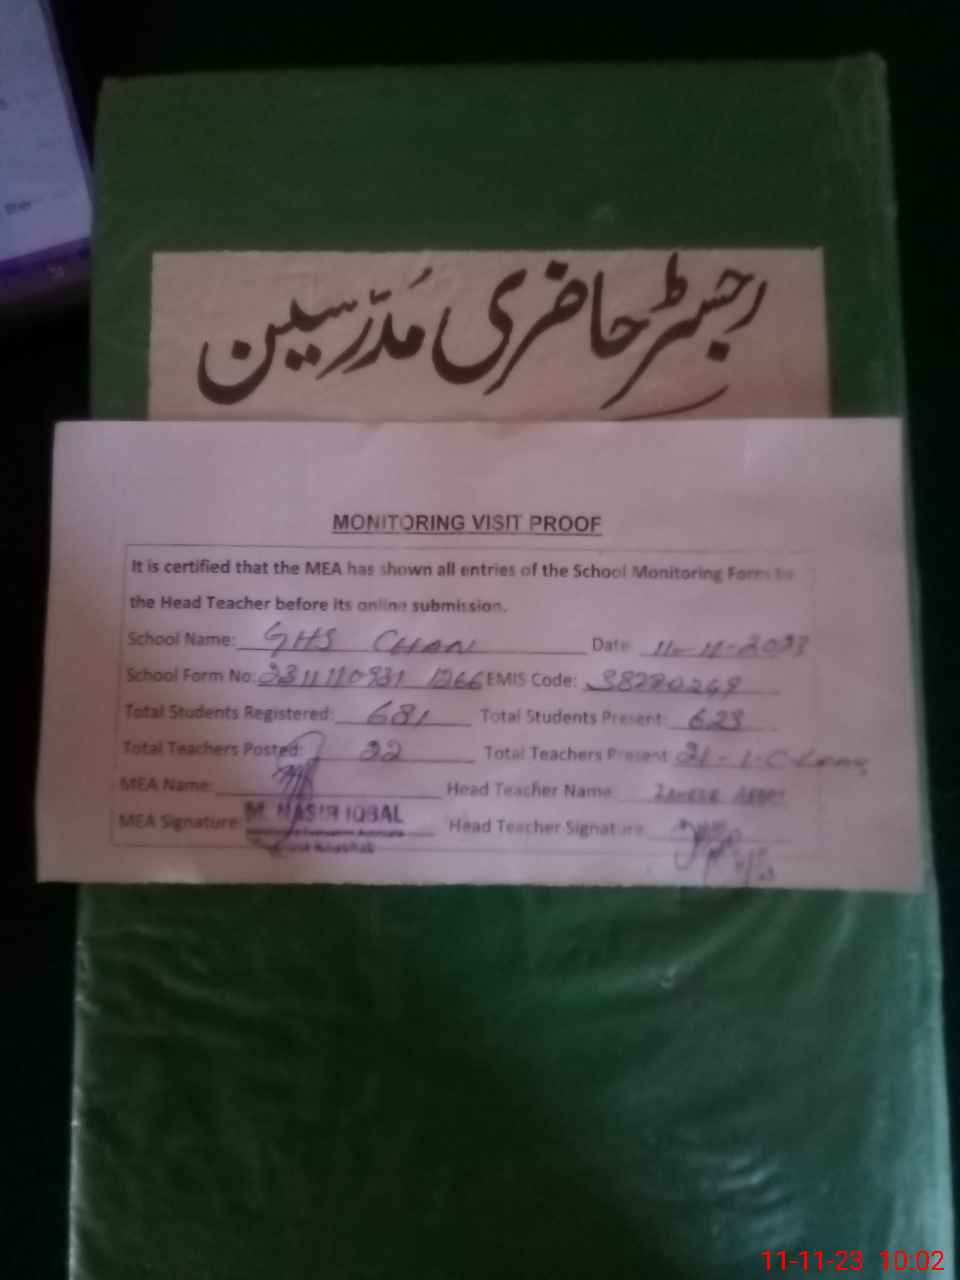 رجسٹر حاضری مُدرّسین
MONITORING VISIT PROOF
It is certified that the MEA has shown all entries of the School Monitoring Form to
the Head Teacher before its online submission.
School Name: GHS CHAN Date: 11-11-2023
School Form No: 2311110931 1266 EMIS Code: 38220249
Total Students Registered: 681 Total Students Present: 623
Total Teachers Posted: 22 Total Teachers Present: 21-1-C Leave
MEA Name: Head Teacher Name: ZAHEER ABBAS
M. NASIR IQBAL
MEA Signature: Head Teacher Signature:
11-11-23 10:02